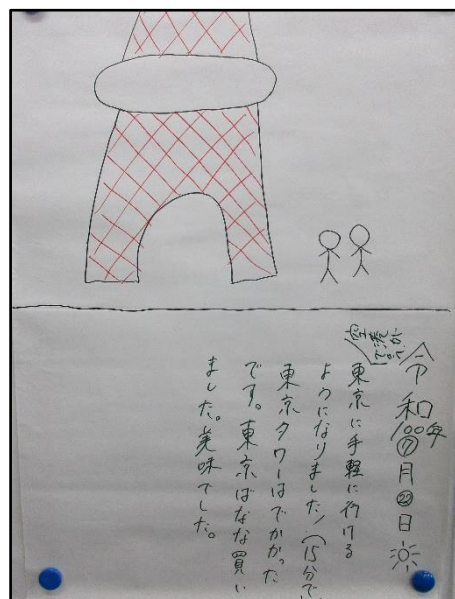 令和100年⑦月㉒日
東京に手軽に行ける
ようになりました！(15分で
東京タワーはでかかった
です。東京ばなな買い
ました。美味でした。